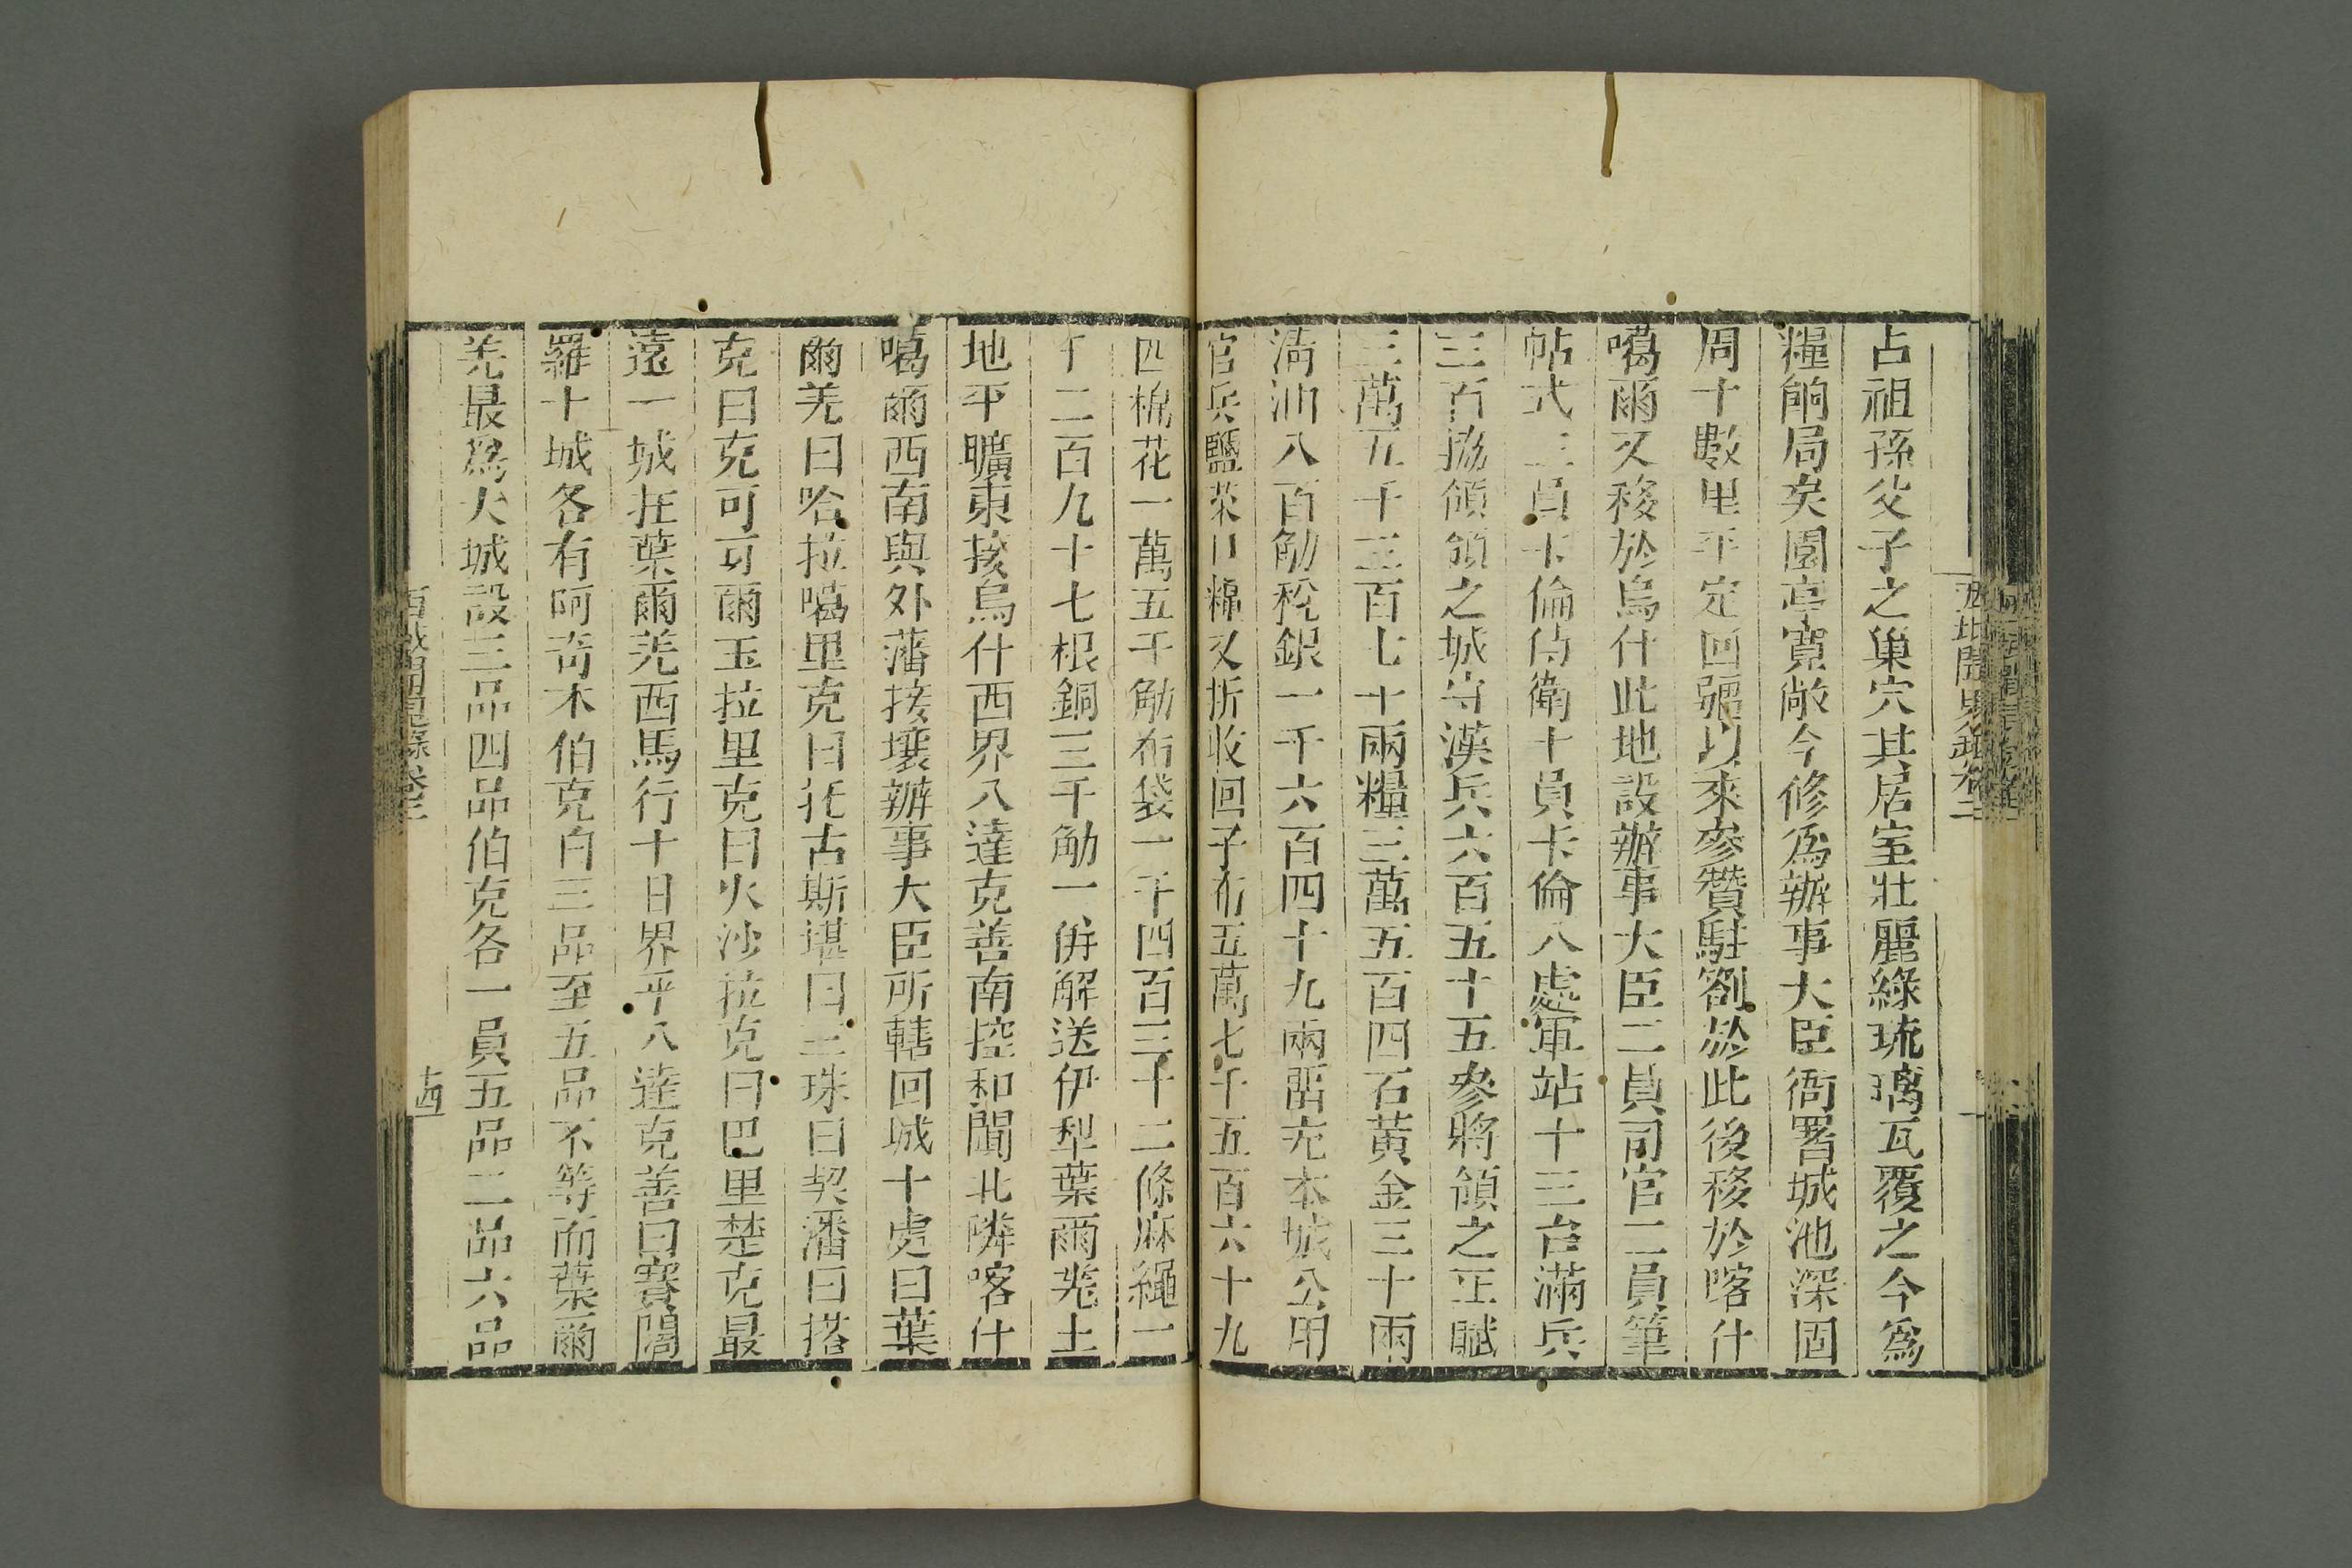 占祖孫父子之巢穴其居室壯麗綠琉璃瓦覆之今爲
糧餉局矣園亭寬敞今修爲辦事大臣衙署城池深固
周十數里平定回疆以來參贊駐劄於此後移於喀什
噶爾又移於烏什此地設辦事大臣二員司官二員筆
帖式三員卡倫侍衛十員卡倫八處軍站十三台滿兵
三百協領領之城守漢兵六百五十五參將領之正賦
三萬五千三百七十兩糧三萬五百四石黃金三十兩
清油八百觔稅銀一千六百四十九兩畱充本城公用
官兵鹽菜口糧又折收回子布五萬七千五百六十九
匹棉花一萬五千觔布袋一千四百三十二條麻繩一
千二百九十七根銅三千觔一併解送伊犁葉爾羌土
地平曠東接烏什西界八達克善南控和闐北隣喀什
噶爾西南與外藩接壤辦事大臣所轄回城十處曰葉
爾羌曰哈拉噶里克曰托古斯堪曰三珠曰契潘曰搭
克曰克可可爾玉拉里克曰火沙拉克曰巴里楚克最
遠一城在葉爾羌西馬行十日界乎八達克善曰賽闊
羅十城各有阿奇木伯克自三品至五品不等而葉爾
羌最爲大城設三品四品伯克各一員五品二品六品
西域聞見錄卷二
十四